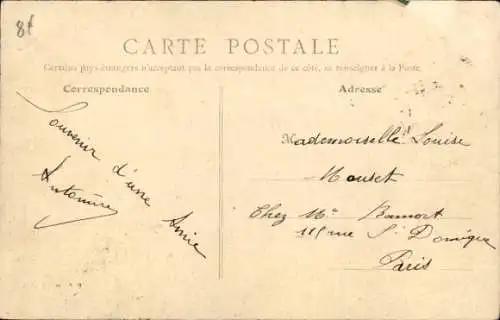 8f
CARTE POSTALE
Certains pays étrangers n'acceptant pas la correspondance de ce côté, se renseigner à la Poste.
Correspondance
Adresse
Souvenir d'une Amie
Mademoiselle Louise
Mouset
Chez Mr
115 rue St Dominique
Paris